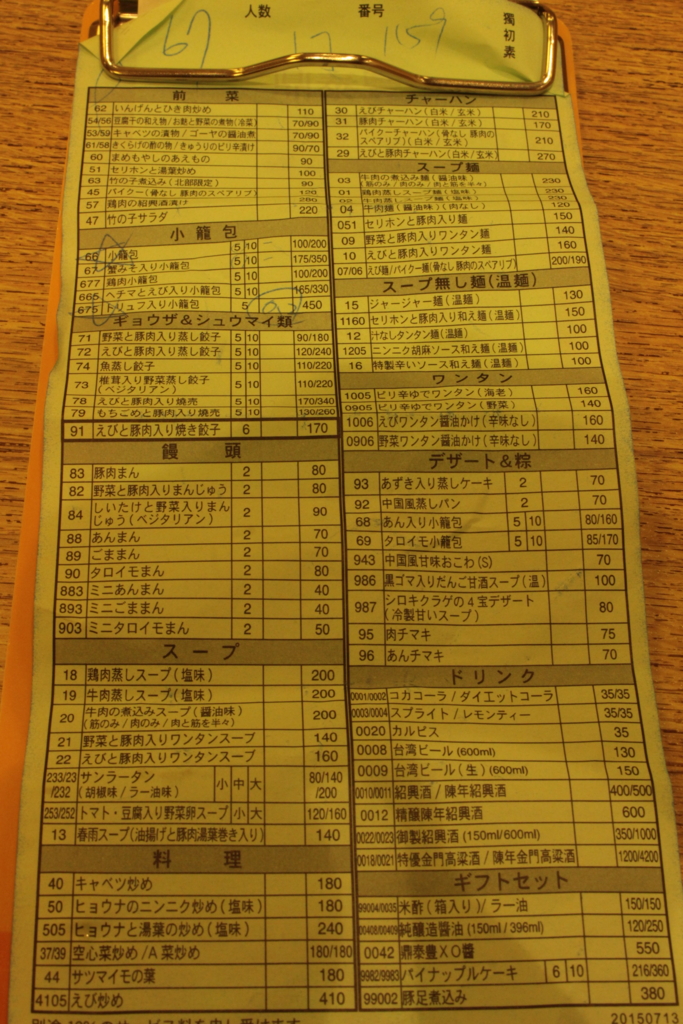 人数 番号 獨初素
67 159
前 菜
62 いんげんとひき肉炒め 110
54/56 豆腐干の和え物/お麩と野菜の煮物(冷菜) 70/90
53/59 キャベツの漬物/ゴーヤの醤油煮 70/90
61/58 きくらげの酢の物/きゅうりのピリ辛漬け 90/70
60 まめもやしのあえもの 90
51 セリホンと湯葉炒め 100
63 竹の子煮込み(北部限定) 90
45 パイクー(骨なし豚肉のスペアリブ) 120
57 鶏肉の紹興酒漬け
47 竹の子サラダ 220
小籠包
66 小籠包 5 10 二 100/200
67 蟹みそ入り小籠包 5 10 二 175/350
677 鶏肉小籠包 5 10 100/200
665 ヘチマとえび入り小籠包 5 10 165/330
675 トリュフ入り小籠包 5 450
ギョウザ&シュウマイ類
71 野菜と豚肉入り蒸し餃子 5 10 90/180
72 えびと豚肉入り蒸し餃子 5 10 120/240
74 魚蒸し餃子 5 10 110/220
73 椎茸入り野菜蒸し餃子(ベジタリアン) 5 10 110/220
78 えびと豚肉入り焼売 5 10 170/340
79 もちごめと豚肉入り焼売 5 10 130/260
91 えびと豚肉入り焼き餃子 6 170
饅 頭
83 豚肉まん 2 80
82 野菜と豚肉入りまんじゅう 2 80
84 しいたけと野菜入りまんじゅう(ベジタリアン) 2 90
88 あんまん 2 70
89 ごままん 2 70
90 タロイモまん 2 80
883 ミニあんまん 2 40
893 ミニごままん 2 40
903 ミニタロイモまん 2 50
スープ
18 鶏肉蒸しスープ(塩味) 200
19 牛肉蒸しスープ(塩味) 200
20 牛肉の煮込みスープ(醤油味)
(筋のみ/肉のみ/肉と筋を半々) 200
21 野菜と豚肉入りワンタンスープ 140
22 えびと豚肉入りワンタンスープ 160
233/23/232 サンラータン
(胡椒味/ラー油味) 小 中 大 80/140/200
253/252 トマト・豆腐入り野菜卵スープ 小 大 120/160
13 春雨スープ(油揚げと豚肉湯葉巻き入り) 140
料 理
40 キャベツ炒め 180
50 ヒョウナのニンニク炒め(塩味) 180
505 ヒョウナと湯葉の炒め(塩味) 240
37/39 空心菜炒め/A菜炒め 180/180
44 サツマイモの葉 180
4105 えび炒め 410
チャーハン
30 えびチャーハン(白米/玄米) 210
31 豚肉チャーハン(白米/玄米) 170
32 パイクーチャーハン(骨なし豚肉のスペアリブ)(白米/玄米) 210
29 えびと豚肉チャーハン(白米/玄米) 270
スープ麺
03 牛肉の煮込み麺(醤油味)
(筋のみ/肉のみ/肉と筋を半々) 230
01 鶏肉蒸しスープ麺(塩味) 230
02 牛肉蒸しスープ麺(塩味) 230
04 牛肉麺(醤油味)(肉なし) 120
051 セリホンと豚肉入り麺 150
09 野菜と豚肉入りワンタン麺 140
10 えびと豚肉入りワンタン麺 160
07/06 えび麺/パイクー麺(骨なし豚肉のスペアリブ) 200/190
スープ無し麺(温麺)
15 ジャージャー麺(温麺) 130
1160 セリホンと豚肉入り和え麺(温麺) 150
12 汁なしタンタン麺(温麺) 100
1205 ニンニク胡麻ソース和え麺(温麺) 100
16 特製辛いソース和え麺(温麺) 100
ワンタン
1005 ピリ辛ゆでワンタン(海老) 160
0905 ピリ辛ゆでワンタン(野菜) 140
1006 えびワンタン醤油かけ(辛味なし) 160
0906 野菜ワンタン醤油かけ(辛味なし) 140
デザート&粽
93 あずき入り蒸しケーキ 2 70
92 中国風蒸しパン 2 70
68 あん入り小籠包 5 10 80/160
69 タロイモ小籠包 5 10 85/170
943 中国風甘味おこわ(S) 70
986 黒ゴマ入りだんご甘酒スープ(温) 100
987 シロキクラゲの4宝デザート
(冷製甘いスープ) 80
95 肉チマキ 75
96 あんチマキ 70
ドリンク
0001/0002 コカコーラ/ダイエットコーラ 35/35
0003/0004 スプライト/レモンティー 35/35
0020 カルピス 35
0008 台湾ビール(600ml) 130
0009 台湾ビール(生)(600ml) 150
0010/0011 紹興酒/陳年紹興酒 400/500
0012 精醸陳年紹興酒 600
0022/0023 御製紹興酒(150ml/600ml) 350/1000
0018/0021 特優金門高粱酒/陳年金門高粱酒 1200/4200
ギフトセット
99004/0035 米酢(箱入り)/ラー油 150/150
00408/00409 純醸造醤油(150ml/396ml) 120/250
0042 鼎泰豊XO醬 550
9982/9983 パイナップルケーキ 6 10 216/360
99002 豚足煮込み 380
別途10%のサービス料を申し受けます
20150713